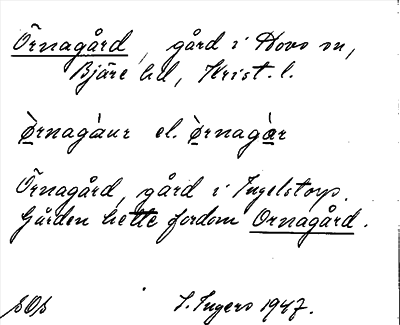 Örnagård, gård i Hovs sn,
Bjäre hd, Krist. l.
Ørnagàur el. Ørnagàr
Örnagård, gård i Ingelstorp.
Gården hette fordom Ornagård.
I. Ingers 1947.